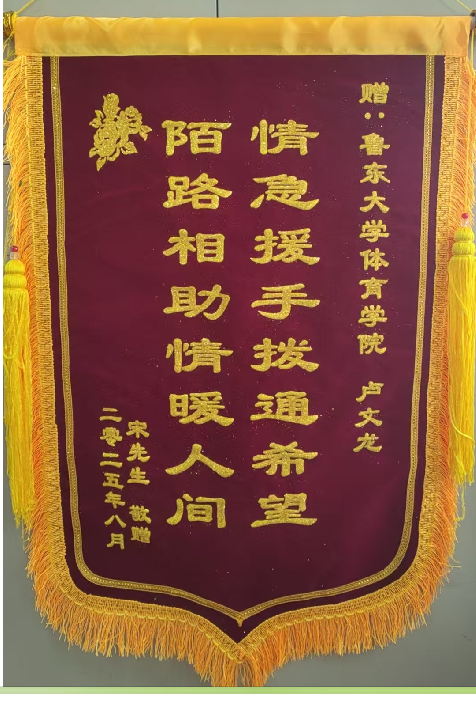 赠：鲁东大学体育学院 卢文龙
情急援手拨通希望
陌路相助情暖人间
宋先生 敬赠
二零二五年八月